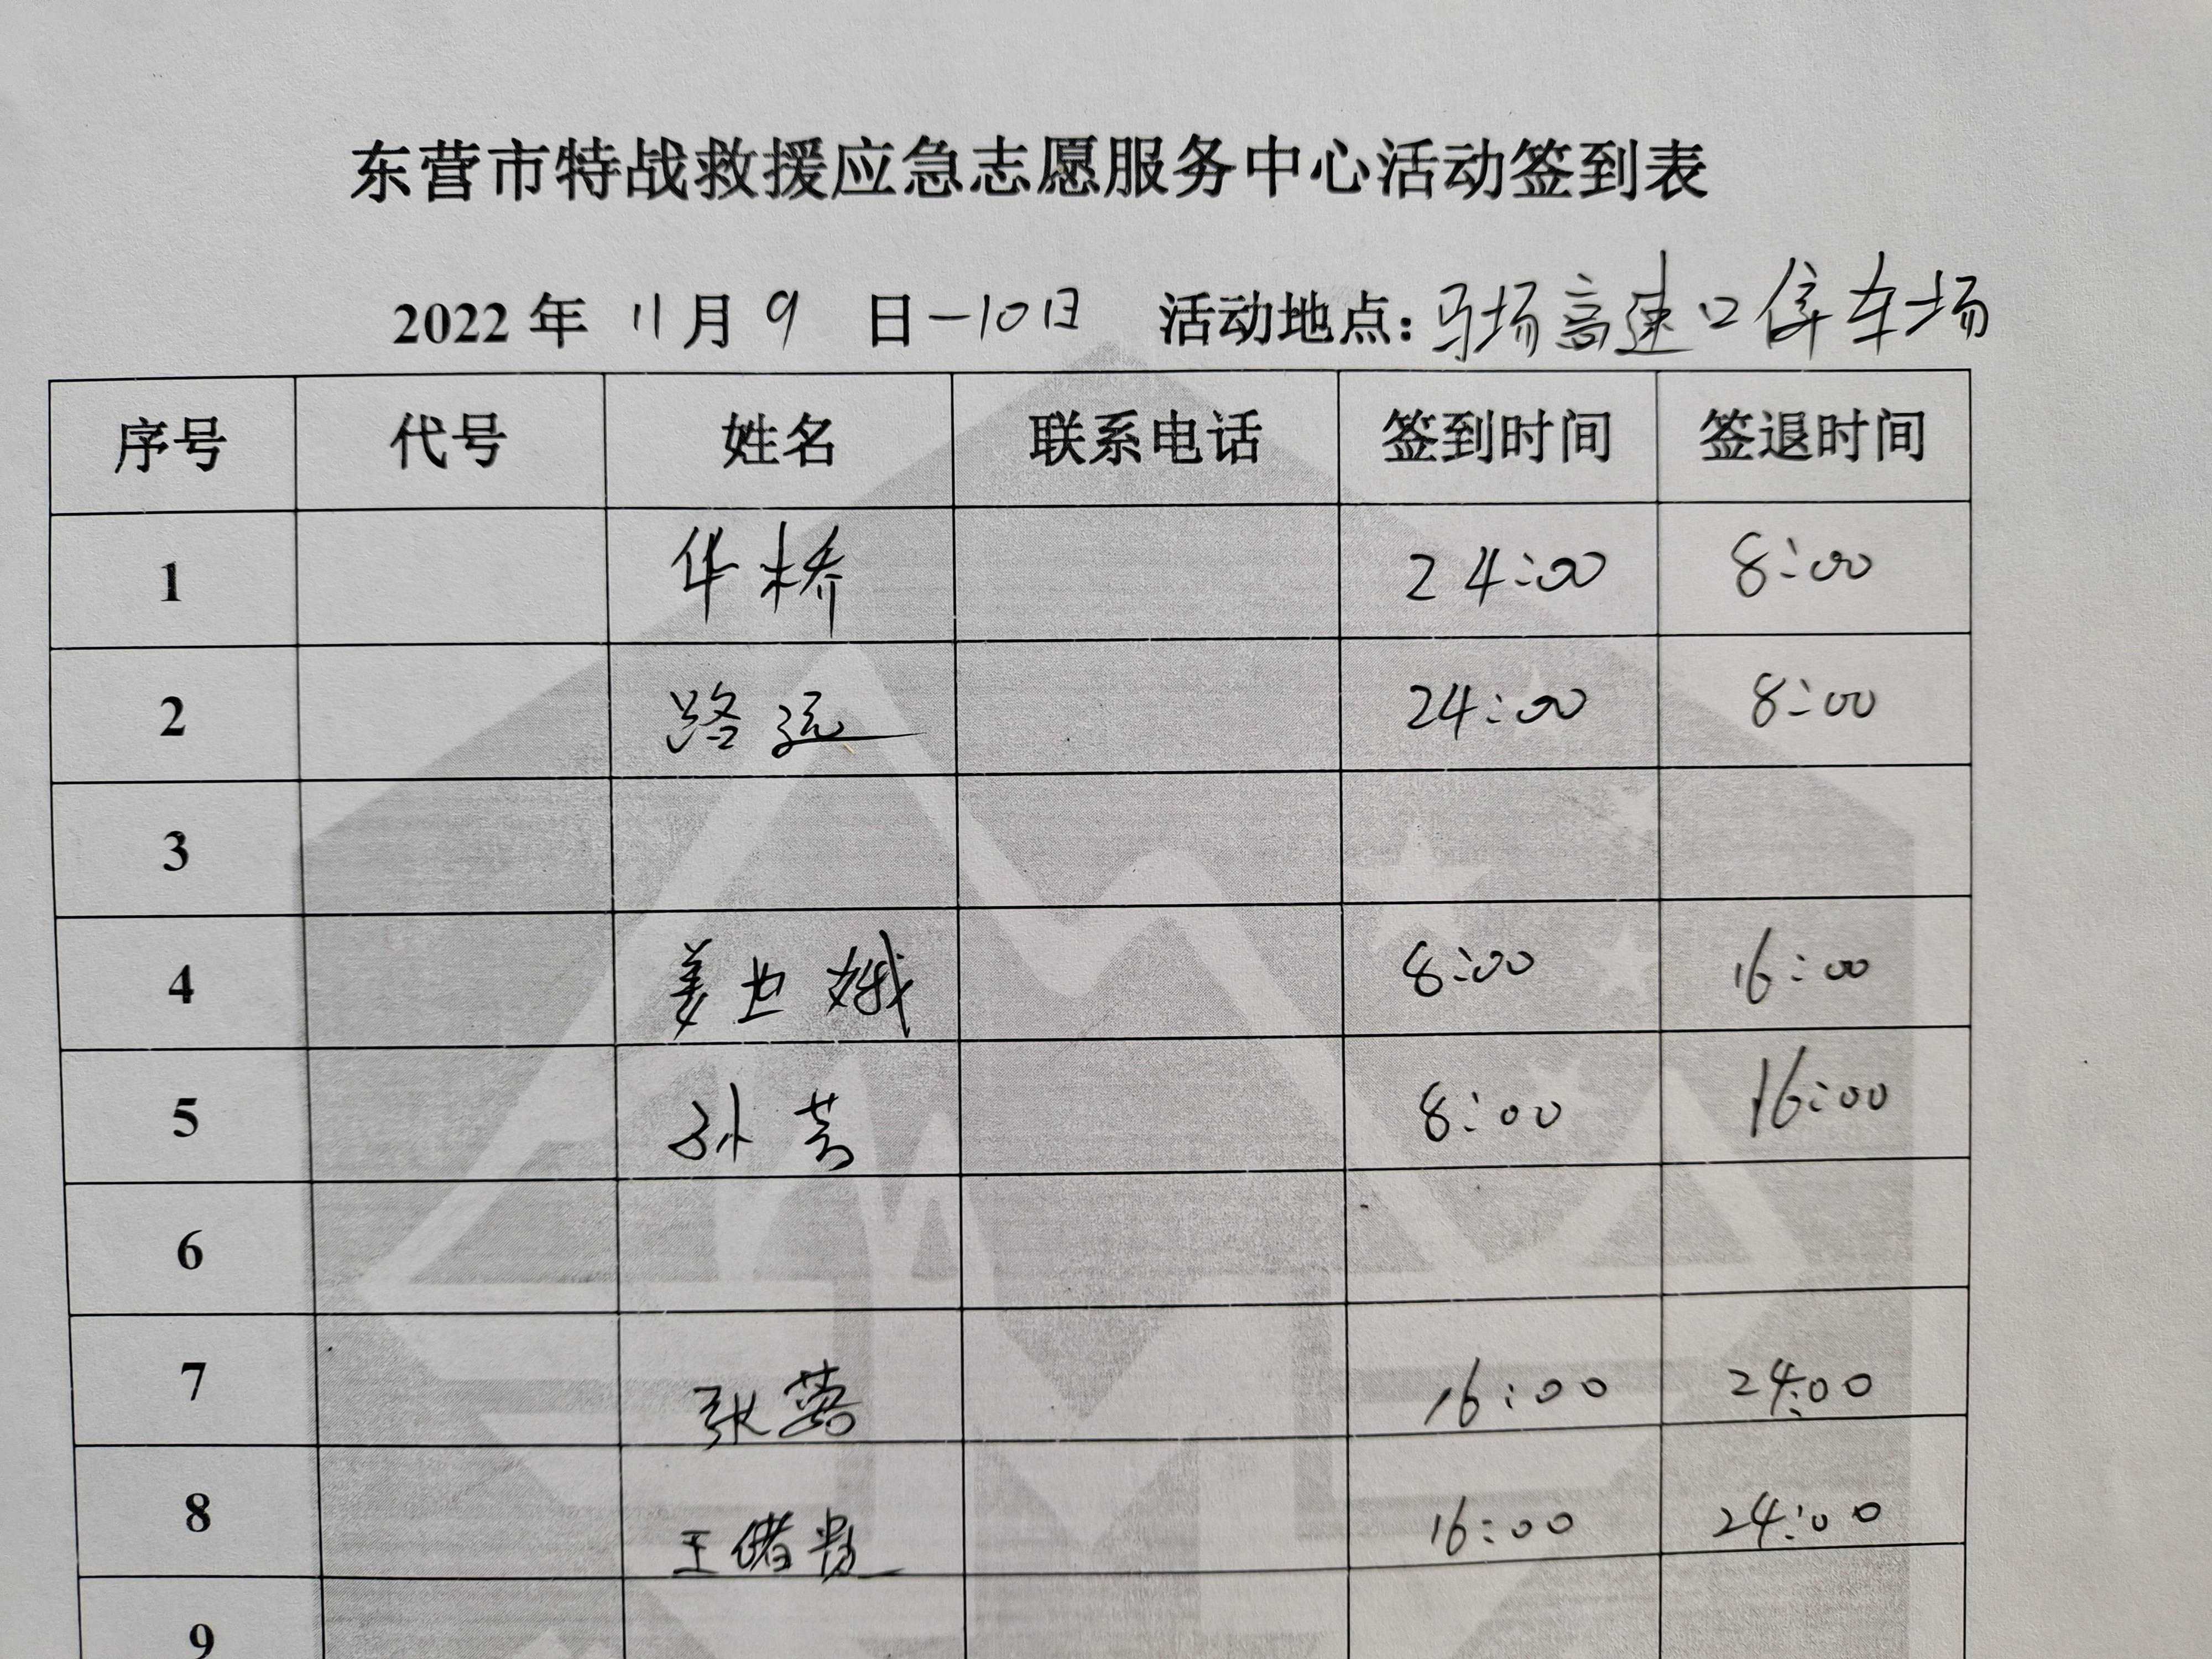 东营市特战救援应急志愿服务中心活动签到表
2022 年 11 月 9 日-10日 活动地点:马场高速口停车场
序号 代号 姓名 联系电话 签到时间 签退时间
1 华桥 24:00 8:00
2 路远 24:00 8:00
3
4 姜世娥 8:00 16:00
5 孙芳 8:00 16:00
6
7 张蓉 16:00 24:00
8 王绪 16:00 24:00
9